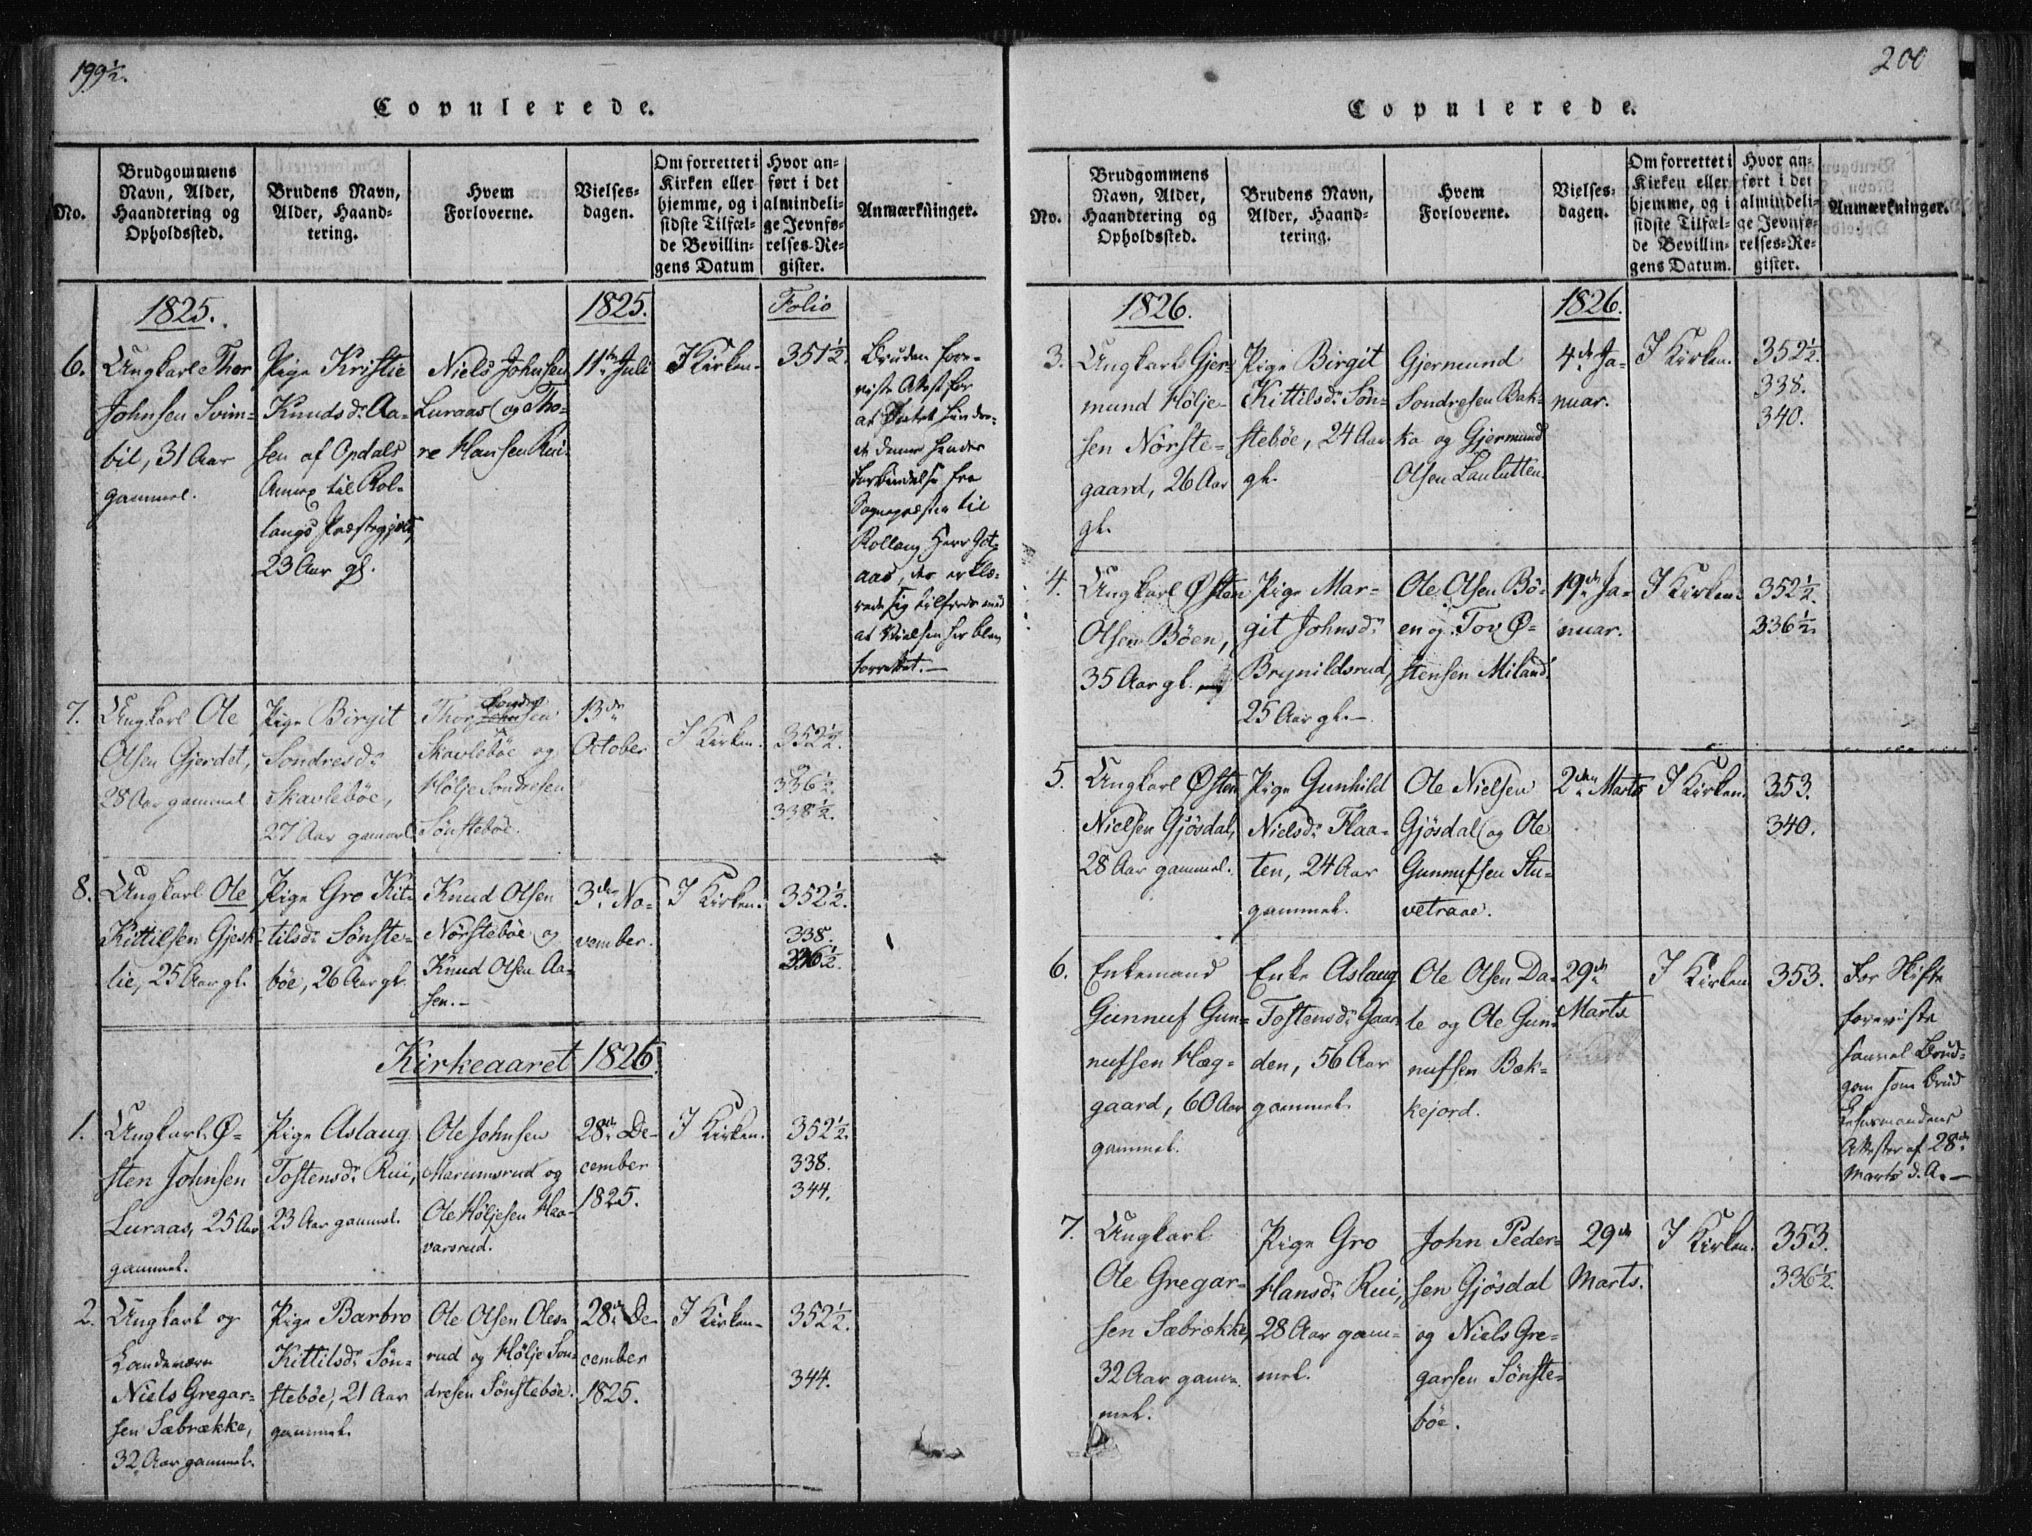 199½.
Copulerede.
No.
Brudgommens
Navn, Alder,
Haandtering og
Opholdssted.
Brudens Navn,
Alder, Haand-
tering.
Hvem
Forloverne.
Vielses-
dagen.
Om forrettet i
Kirken eller
hjemme, og i
sidste Tilfæl-
de Bevillin-
gens Datum
Hvor an-
ført i det
almindeli-
ge Jevnfø-
relses-Re-
gister.
Anmærkninger.
1825.
1825.
Folio
6.
Ungkarl Thor
Johnsen Svim-
bil, 31 Aar
gammel.
Pige Kristie
Knudsd. Aa-
sen af Opdals
Annex til Rol-
langs Præstegjeld,
23 Aar gl.
Niels Johnsen
Luraas og Tho-
re Hansen Rui.
11te Juli
I Kirken.
351½.
Bruden fore-
viste Attest for
at
Sognepræsten til
Rollang Herr
aas, der erklæ-
rede sig tilfreds med
at Vielsen her blev
forrettet.
7.
Ungkarl Ole
Olsen Gjerdet,
28 Aar gammel
Pige Birgit
Sondresd.
Skavlebøe,
27 Aar gammel
Thor Sondre
Johnsen
Skavlebøe og
Hølje Sondresen
Sønstebøe.
13de
October
I Kirken.
352½.
336½.
338½.
8.
Ungkarl Ole
Kittilsen Gjesk-
lie, 25 Aar gl.
Pige Gro Kit-
tilsd. Sønste-
bøe, 26 Aar gl.
Knud Olsen
Nørstebøe og
Knud Olsen Aa-
sen.
3de No-
vember.
I Kirken.
352½.
338.
336½.
Kirkeaaret 1826.
1.
Ungkarl Ø-
sten Johnsen
Luraas, 25 Aar
gammel.
Pige Aslaug
Tostensd. Rui,
23 Aar gammel.
Ole Johnsen
Marumsrud og
Ole Høljesen Haa-
varsrud.
28de De-
cember
1825.
I Kirken.
352½.
338.
344.
2.
Ungkarl og
Landeværn
Niels Gregar-
sen Sæbrække,
32 Aar gammel.
Pige Barbro
Kittilsd. Søn-
stebøe, 21 Aar
gammel.
Ole Olsen Oles-
rud og Hølje Son-
dresen Sønstebøe.
28de De-
cember
1825.
I Kirken.
352½.
344.
200
Copulerede.
No.
Brudgommens
Navn, Alder,
Haandtering og
Opholdssted.
Brudens Navn,
Alder, Haand-
tering.
Hvem
Forloverne.
Vielses-
dagen.
Om forrettet i
Kirken eller
hjemme, og i
sidste Tilfæl-
de Bevillin-
gens Datum.
Hvor an-
ført i det
almindeli-
ge Jevnfø-
relses-Re-
gister.
Anmærkninger.
1826.
1826.
3.
Ungkarl Gjer-
mund Hølje-
sen Nørste-
gaard, 26 Aar
gl.
Pige Birgit
Kittilsd. Søn-
stebøe, 24 Aar
gl.
Gjermund
Sondresen Bak-
ka og Gjermund
Olsen Laulutten.
4de Ja-
nuar.
I Kirken.
352½.
338.
340.
4.
Ungkarl Østen
Olsen Bøen,
35 Aar gl.
Pige Mar-
git Johnsd.
Brynildsrud,
25 Aar gl.
Ole Olsen Bø-
en og Tov Ø-
stensen Miland
19de Ja-
nuar.
I Kirken.
352½.
336½.
5.
Ungkarl Østen
Nielsen Gjøsdal,
28 Aar gammel.
Pige Gunhild
Nielsd. Flaa-
ten, 24 Aar
gammel.
Ole Nielsen
Gjøsdal og Ole
Gunnufsen Stu-
vetraae.
2den Marts
I Kirken.
353.
340.
6.
Enkemand
Gunnuf Gun-
nufsen Hæg-
gaard, 60 Aar
gammel.
Enke Aslaug
Tostensd. Gaar-
den, 56 Aar
gammel.
Ole Olsen Da-
le og Ole Gun-
nufsen Bæk-
kejord.
29de
Marts
I Kirken
353.
For Skifte
foreviste
saavel Brud-
gom som Brud
Lensmandens
Attester af 28de
Marts d. A.
7.
Ungkarl
Ole Gregar-
sen Sæbrække,
32 Aar gam-
mel.
Pige Gro
Hansd. Rui,
28 Aar gam-
mel.
John Peder-
sen Gjøsdal
og Niels Gre-
garsen Sønste-
bøe.
29de
Marts.
I Kirken.
353.
336½.